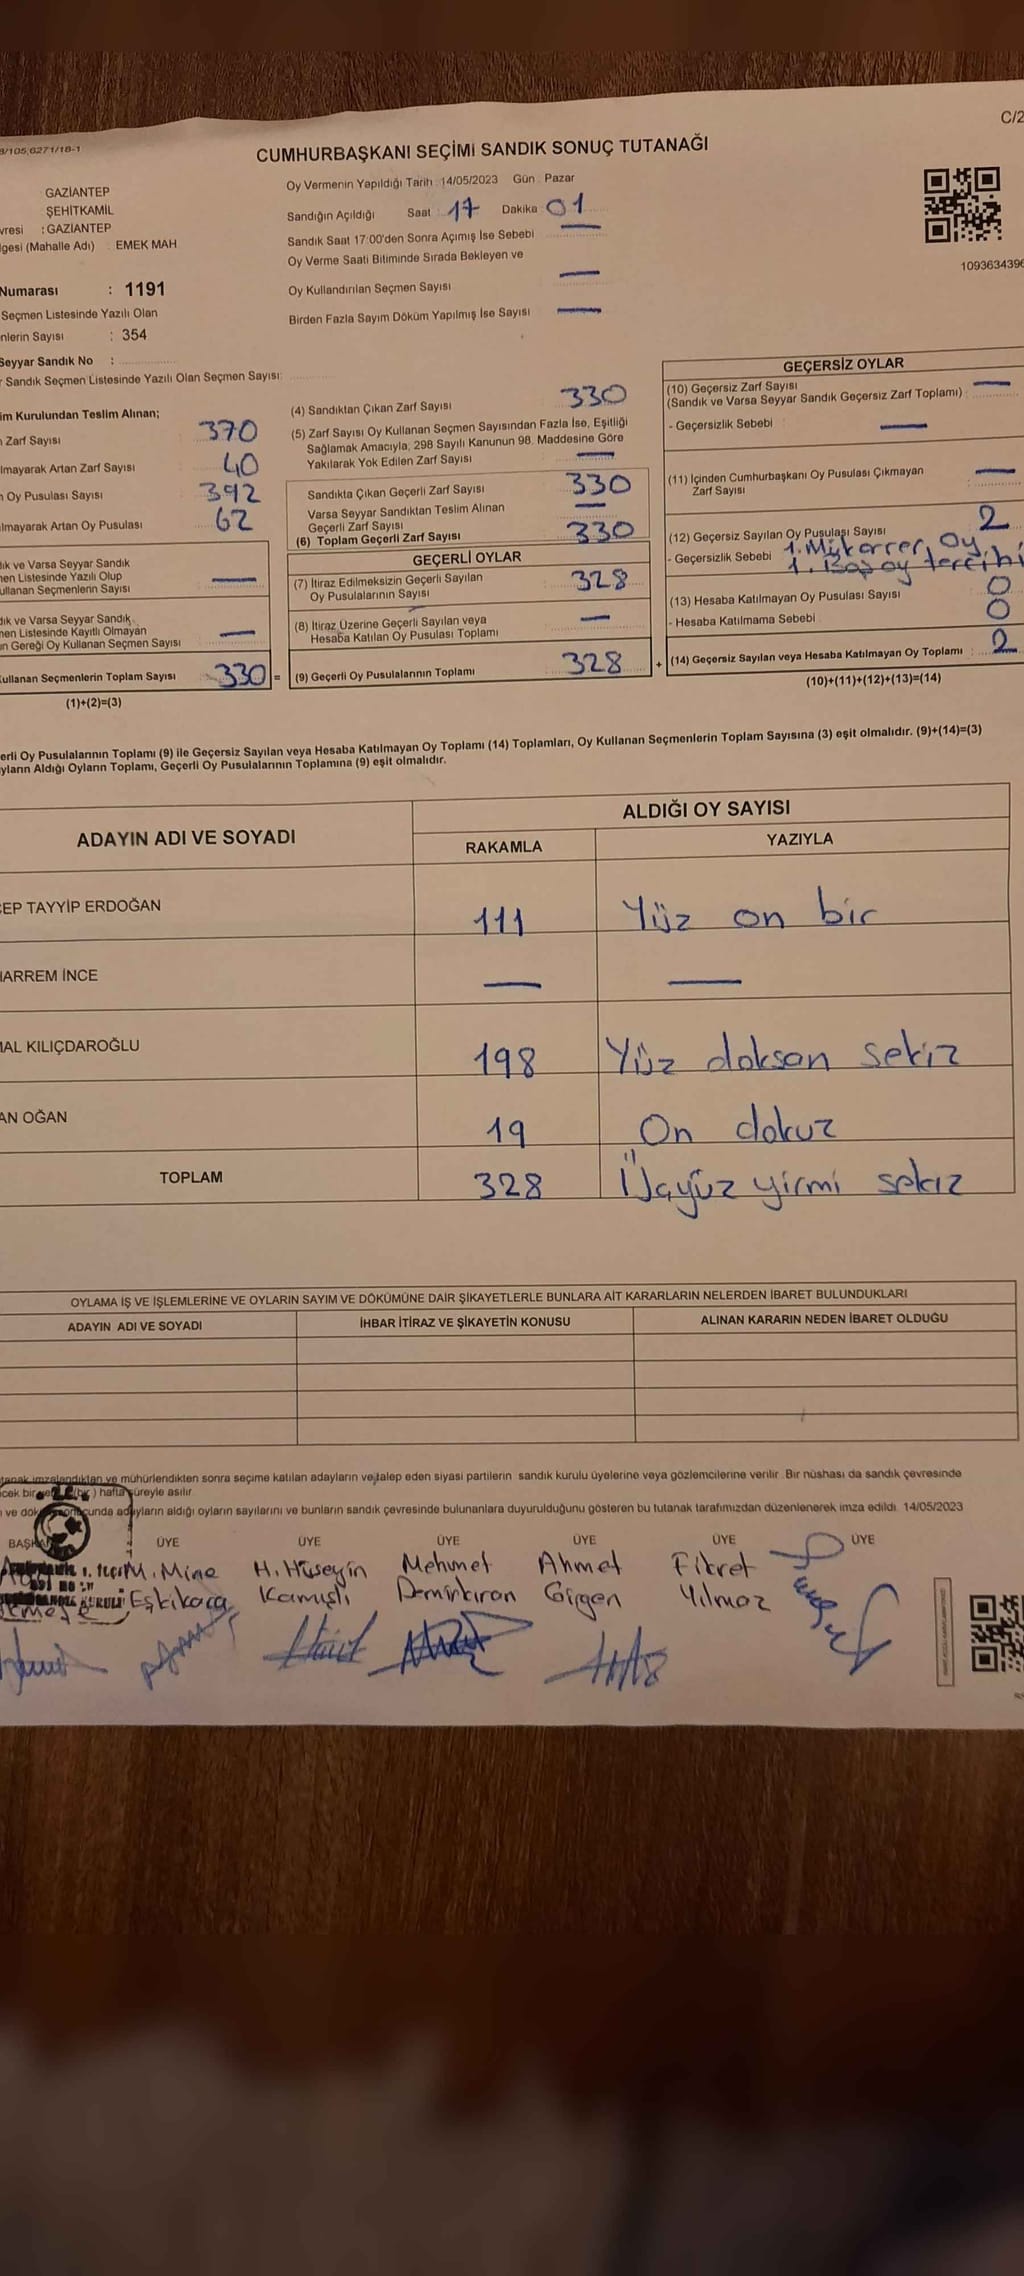 8/105,6271/18-1
C/2
CUMHURBAŞKANI SEÇİMİ SANDIK SONUÇ TUTANAĞI
GAZİANTEP
ŞEHİTKAMİL
vresi : GAZİANTEP
lgesi (Mahalle Adı) : EMEK MAH
Numarası : 1191
Seçmen Listesinde Yazılı Olan
nlerin Sayısı : 354
Seyyar Sandık No :
r Sandık Seçmen Listesinde Yazılı Olan Seçmen Sayısı:
Oy Vermenin Yapıldığı Tarih : 14/05/2023 Gün : Pazar
Sandığın Açıldığı Saat : 17 Dakika : 01
Sandık Saat 17:00'den Sonra Açımış İse Sebebi —
Oy Verme Saati Bitiminde Sırada Bekleyen ve
Oy Kullandırılan Seçmen Sayısı —
Birden Fazla Sayım Döküm Yapılmış İse Sayısı —
1093634396
im Kurulundan Teslim Alınan;
n Zarf Sayısı 370
lmayarak Artan Zarf Sayısı 40
n Oy Pusulası Sayısı 392
lmayarak Artan Oy Pusulası 62
dık ve Varsa Seyyar Sandık
men Listesinde Yazılı Olup
ullanan Seçmenlerin Sayısı —
dık ve Varsa Seyyar Sandık
men Listesinde Kayıtlı Olmayan
ın Gereği Oy Kullanan Seçmen Sayısı —
ullanan Seçmenlerin Toplam Sayısı 330 =
(1)+(2)=(3)
(4) Sandıktan Çıkan Zarf Sayısı 330
(5) Zarf Sayısı Oy Kullanan Seçmen Sayısından Fazla İse, Eşitliği
Sağlamak Amacıyla, 298 Sayılı Kanunun 98. Maddesine Göre
Yakılarak Yok Edilen Zarf Sayısı —
Sandıkta Çıkan Geçerli Zarf Sayısı 330
Varsa Seyyar Sandıktan Teslim Alınan
Geçerli Zarf Sayısı —
(6) Toplam Geçerli Zarf Sayısı 330
GEÇERLİ OYLAR
(7) İtiraz Edilmeksizin Geçerli Sayılan
Oy Pusulalarının Sayısı 328
(8) İtiraz Üzerine Geçerli Sayılan veya
Hesaba Katılan Oy Pusulası Toplamı —
(9) Geçerli Oy Pusulalarının Toplamı 328 +
GEÇERSİZ OYLAR
(10) Geçersiz Zarf Sayısı
(Sandık ve Varsa Seyyar Sandık Geçersiz Zarf Toplamı) : —
- Geçersizlik Sebebi : —
(11) İçinden Cumhurbaşkanı Oy Pusulası Çıkmayan
Zarf Sayısı : —
(12) Geçersiz Sayılan Oy Pusulası Sayısı : 2
- Geçersizlik Sebebi : 1. Mükerrer Oy
1. Boş oy tercihi
(13) Hesaba Katılmayan Oy Pusulası Sayısı : 0
- Hesaba Katılmama Sebebi : 0
(14) Geçersiz Sayılan veya Hesaba Katılmayan Oy Toplamı : 2
(10)+(11)+(12)+(13)=(14)
erli Oy Pusulalarının Toplamı (9) ile Geçersiz Sayılan veya Hesaba Katılmayan Oy Toplamı (14) Toplamları, Oy Kullanan Seçmenlerin Toplam Sayısına (3) eşit olmalıdır. (9)+(14)=(3)
yların Aldığı Oyların Toplamı, Geçerli Oy Pusulalarının Toplamına (9) eşit olmalıdır.
ADAYIN ADI VE SOYADI
ALDIĞI OY SAYISI
RAKAMLA YAZIYLA
CEP TAYYİP ERDOĞAN 111 Yüz on bir
HARREM İNCE — —
MAL KILIÇDAROĞLU 198 Yüz doksan sekiz
AN OĞAN 19 On dokuz
TOPLAM 328 Üçyüz yirmi sekiz
OYLAMA İŞ VE İŞLEMLERİNE VE OYLARIN SAYIM VE DÖKÜMÜNE DAİR ŞİKAYETLERLE BUNLARA AİT KARARLARIN NELERDEN İBARET BULUNDUKLARI
ADAYIN ADI VE SOYADI İHBAR İTİRAZ VE ŞİKAYETİN KONUSU ALINAN KARARIN NEDEN İBARET OLDUĞU
tanak imzalandıktan ve mühürlendikten sonra seçime katılan adayların ve talep eden siyasi partilerin sandık kurulu üyelerine veya gözlemcilerine verilir. Bir nüshası da sandık çevresinde
hafta süreyle asılır.
adayların aldığı oyların sayılarını ve bunların sandık çevresinde bulunanlara duyurulduğunu gösteren bu tutanak tarafımızdan düzenlenerek imza edildi. 14/05/2023
ÜYE ÜYE ÜYE ÜYE ÜYE ÜYE
M. Mine H. Hüseyin Mehmet Ahmet Fikret
Eşkikara Kamışlı Demirkıran Girgen Yılmaz